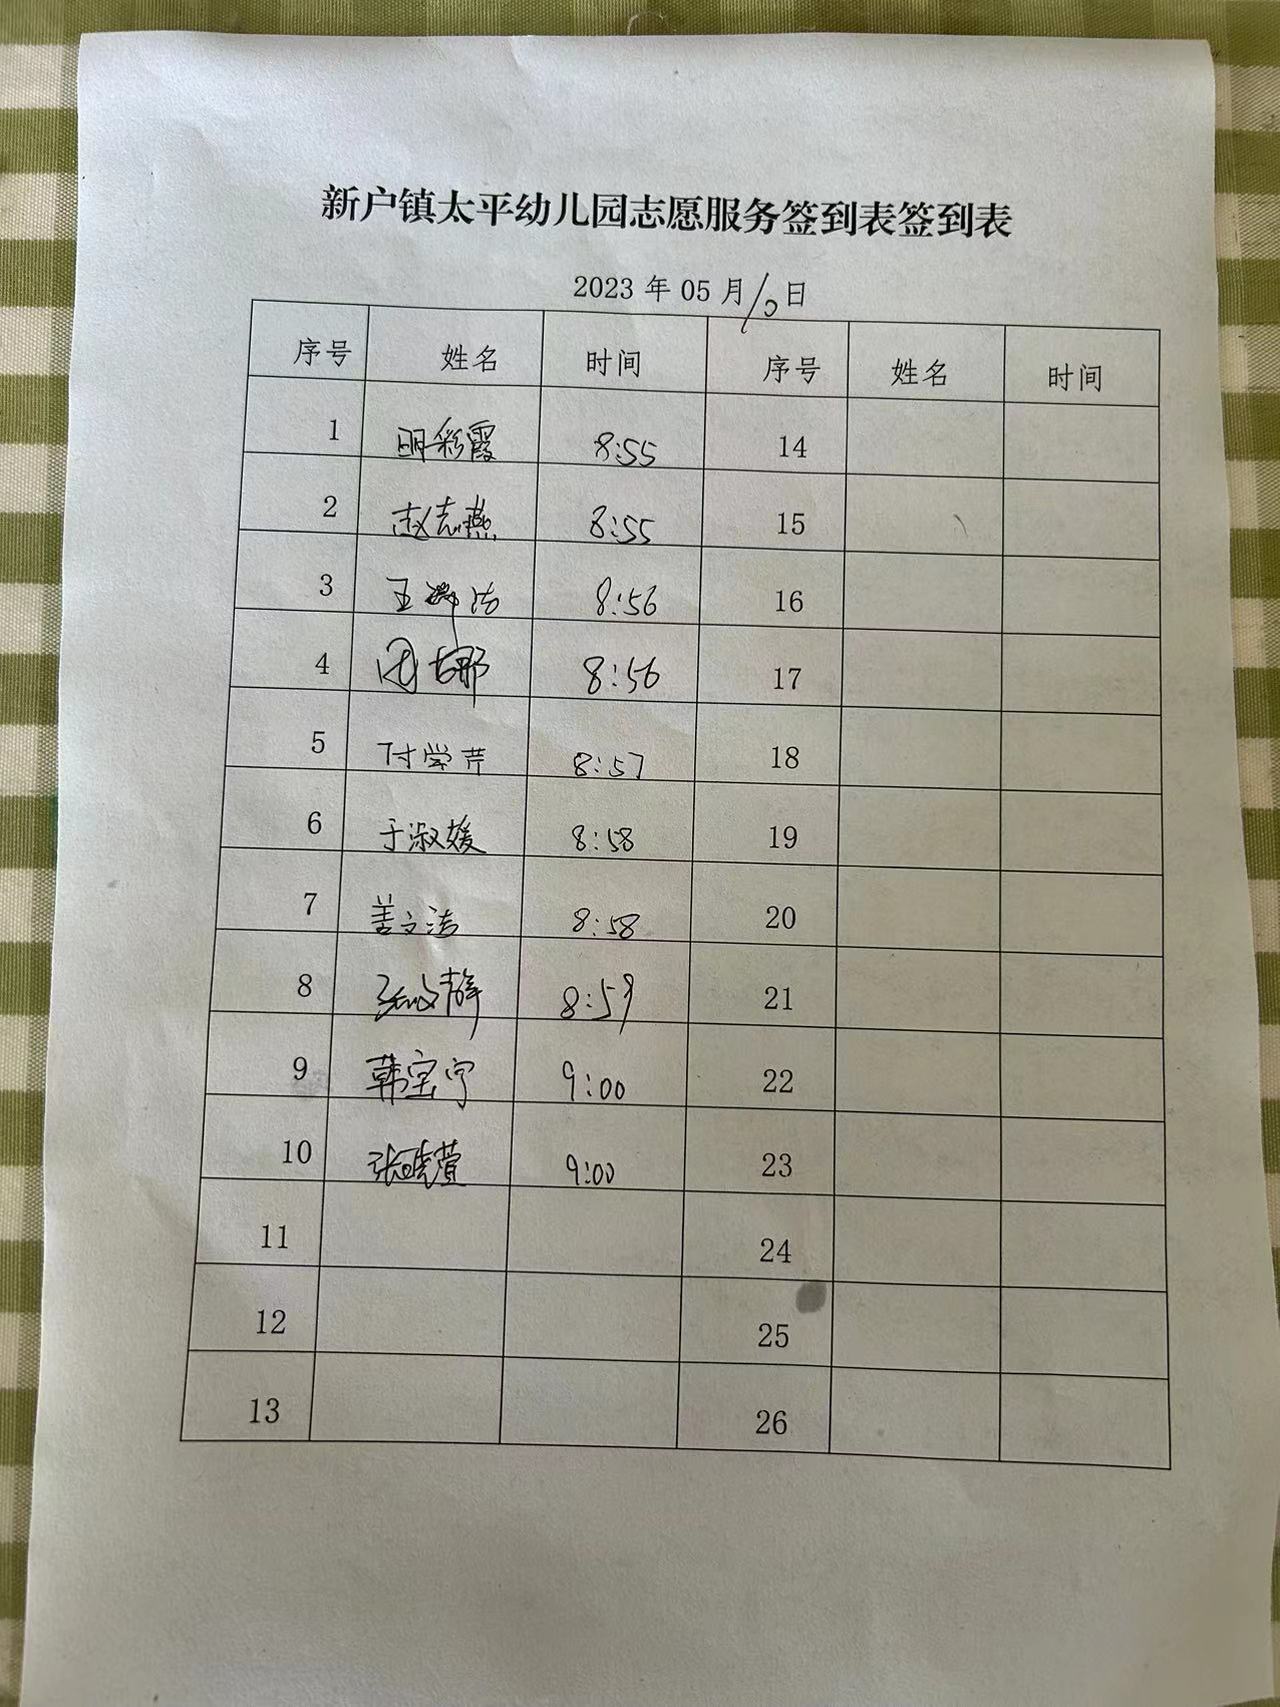 新户镇太平幼儿园志愿服务签到表签到表
2023 年 05 月 10 日
序号 姓名 时间 序号 姓名 时间
1 明彩霞 8:55 14
2 赵志燕 8:55 15
3 王 洁 8:56 16
4 娜 8:56 17
5 付学芹 8:57 18
6 于淑媛 8:58 19
7 姜文洁 8:58 20
8 静 8:59 21
9 韩宝宁 9:00 22
10 张晓萱 9:00 23
11 24
12 25
13 26